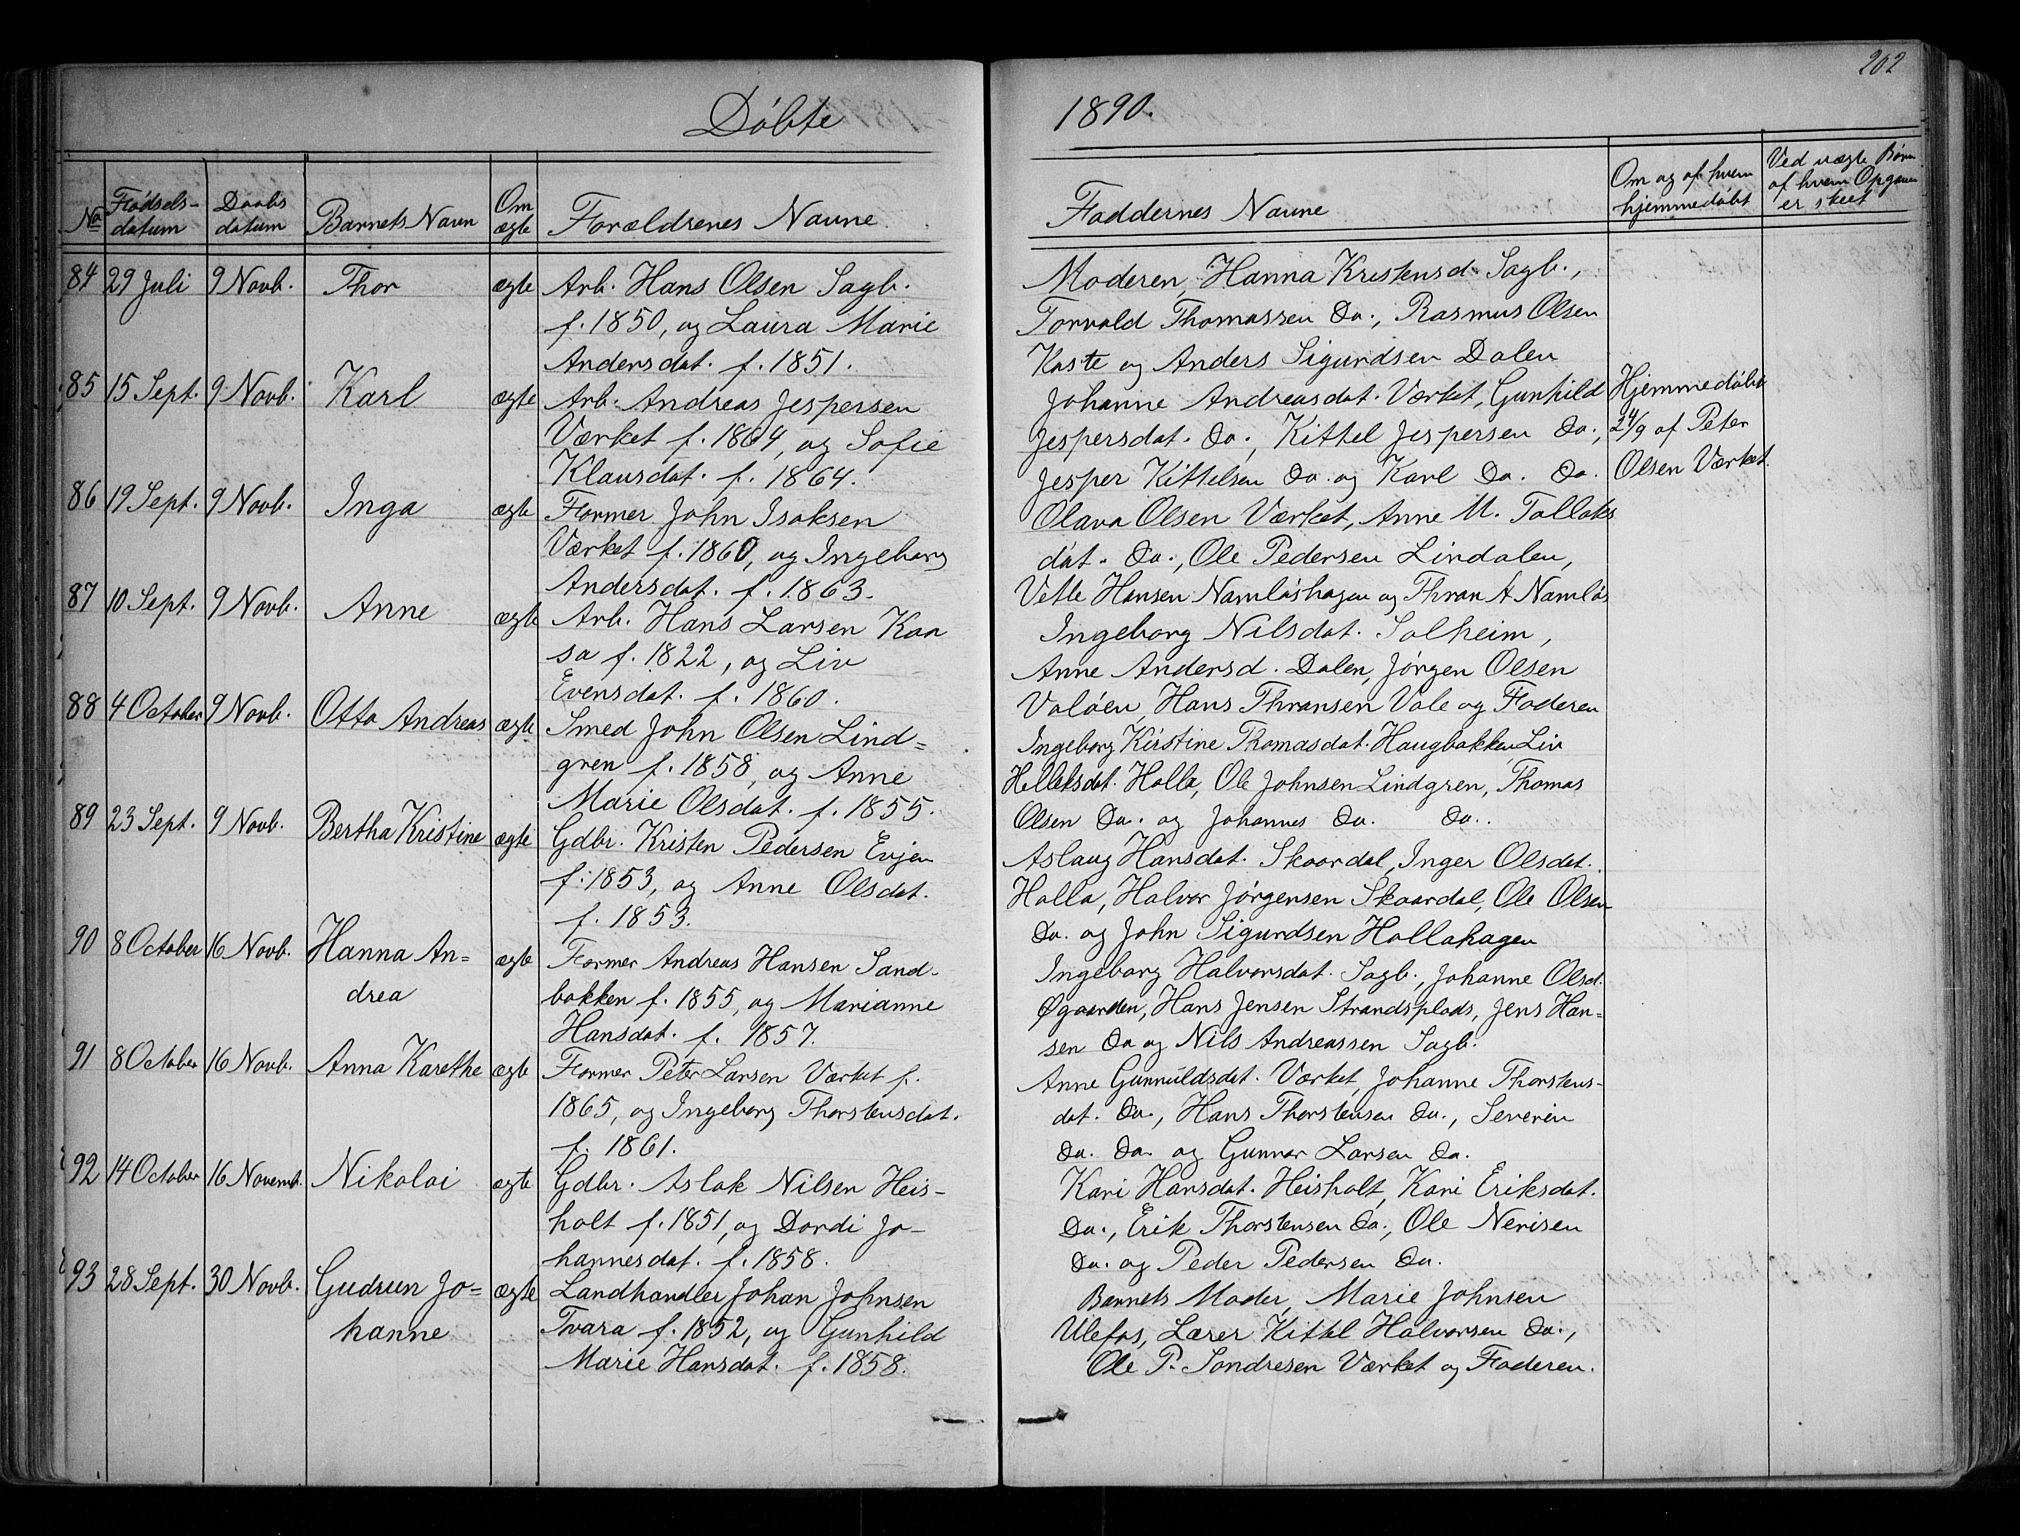 202
Döbte 1890.
No | Födsels-datum | Daabsdatum | Barnets Navn | Om ægte | Forældrenes Navne | Faddernes Navne | Om og af hvem hjemmedöbt | Ved uægte Börn af hvem Opgaven er skeet
84 | 29 Juli | 9 Novb. | Thor | ægte | Arb. Hans Olsen Sagb. | Moderen, Hanna Kristensd. Sagb.,
f. 1850, og Laura Marie | Torvald Thomassen Do., Rasmus Olsen
Andersdat. f. 1851. | Kaste og Anders Sigurdsen Dalen
85 | 15 Sept. | 9 Novb. | Karl | ægte | Arb. Andreas Jespersen | Johanne Andreasdat. Værket, Gunhild | Hjemmedöbt
Værket f. 1864, og Sofie | Jespersdat. Do., Kittel Jespersen Do., | 24/9 af Peter
Klausdat. f. 1864. | Jesper Kittelsen Do. og Karl Do. Do. | Olsen Værket.
86 | 19 Sept. | 9 Novb. | Inga | ægte | Former John Isaksen | Olava Olsen Værket, Anne M. Tollaks
Værket f. 1860, og Ingeborg | dat. Do., Ole Pedersen Lindalen,
Andersdat. f. 1863. | Vetle Hansen Namlöshagen og Thron A Namlös
87 | 10 Sept. | 9 Novb. | Anne | ægte | Arb. Hans Larsen Kaa | Ingeborg Nilsdat. Solheim,
sa f. 1822, og Liv | Anne Andersd. Dalen, Jörgen Olsen
Evensdat. f. 1860. | Valöen, Hans Thransen Vale og Faderen
88 | 4 October | 9 Novb. | Otto Andreas | ægte | Smed John Olsen Lind= | Ingeborg Kirstine Thomasdat. Haugbakken, Liv
gren f. 1858, og Anne | Helleksdat. Holla, Ole Johnsen Lindgren, Thomas
Marie Olsdat. f. 1855. | Olsen Do. og Johannes Do. Do..
89 | 23 Sept. | 9 Novb. | Bertha Kristine | ægte | Gdbr. Kristen Pedersen Evjen | Aslaug Hansdat. Skaardal, Inger Olsdat.
f. 1853, og Anne Olsdat. | Holla, Halvor Jörgensen Skaardal, Ole Olsen
f. 1853. | Do. og John Sigurdsen Hollahagen
90 | 8 October | 16 Novb. | Hanna An= | ægte | Former Andreas Hansen Sand- | Ingeborg Halvorsdat. Sagb., Johanne Olsd.
drea | bakken f. 1855, og Marianne | Øgaarden, Hans Jensen Strandsplads, Jens Han=
Hansdat. f. 1857. | sen Do og Nils Andreassen Sagb.
91 | 8 October | 16 Novb. | Anna Karethe | ægte | Former Peter Larsen Værket f. | Anne Gunnuldsdat. Værket, Johanne Thorstens-
1865, og Ingeborg Thorstensdat. | dat. Do., Hans Thorstensen Do., Severin
f. 1861. | Do. Do. og Gunnar Larsen Do.
92 | 14 October | 16 Novemb. | Nikolai | ægte | Gdbr. Aslak Nilsen Heis- | Kari Hansdat. Heisholt, Kari Eriksdat.
holt f. 1851, og Dordi Jo- | Do., Erik Thorstensen Do., Ole Nerisen
hannesdat. f. 1858. | Do. og Peder Pedersen Do.
93 | 28 Sept. | 30 Novb. | Gudrun Jo= | ægte | Landhandler Johan Johnsen | Barnets Moder, Marie Johnsen
hanne | Tvara f. 1852, og Gunhild | Ulefos, Lærer Kittel Halvorsen Do.,
Marie Hansdat. f. 1858. | Ole P. Sondresen Værket og Faderen.